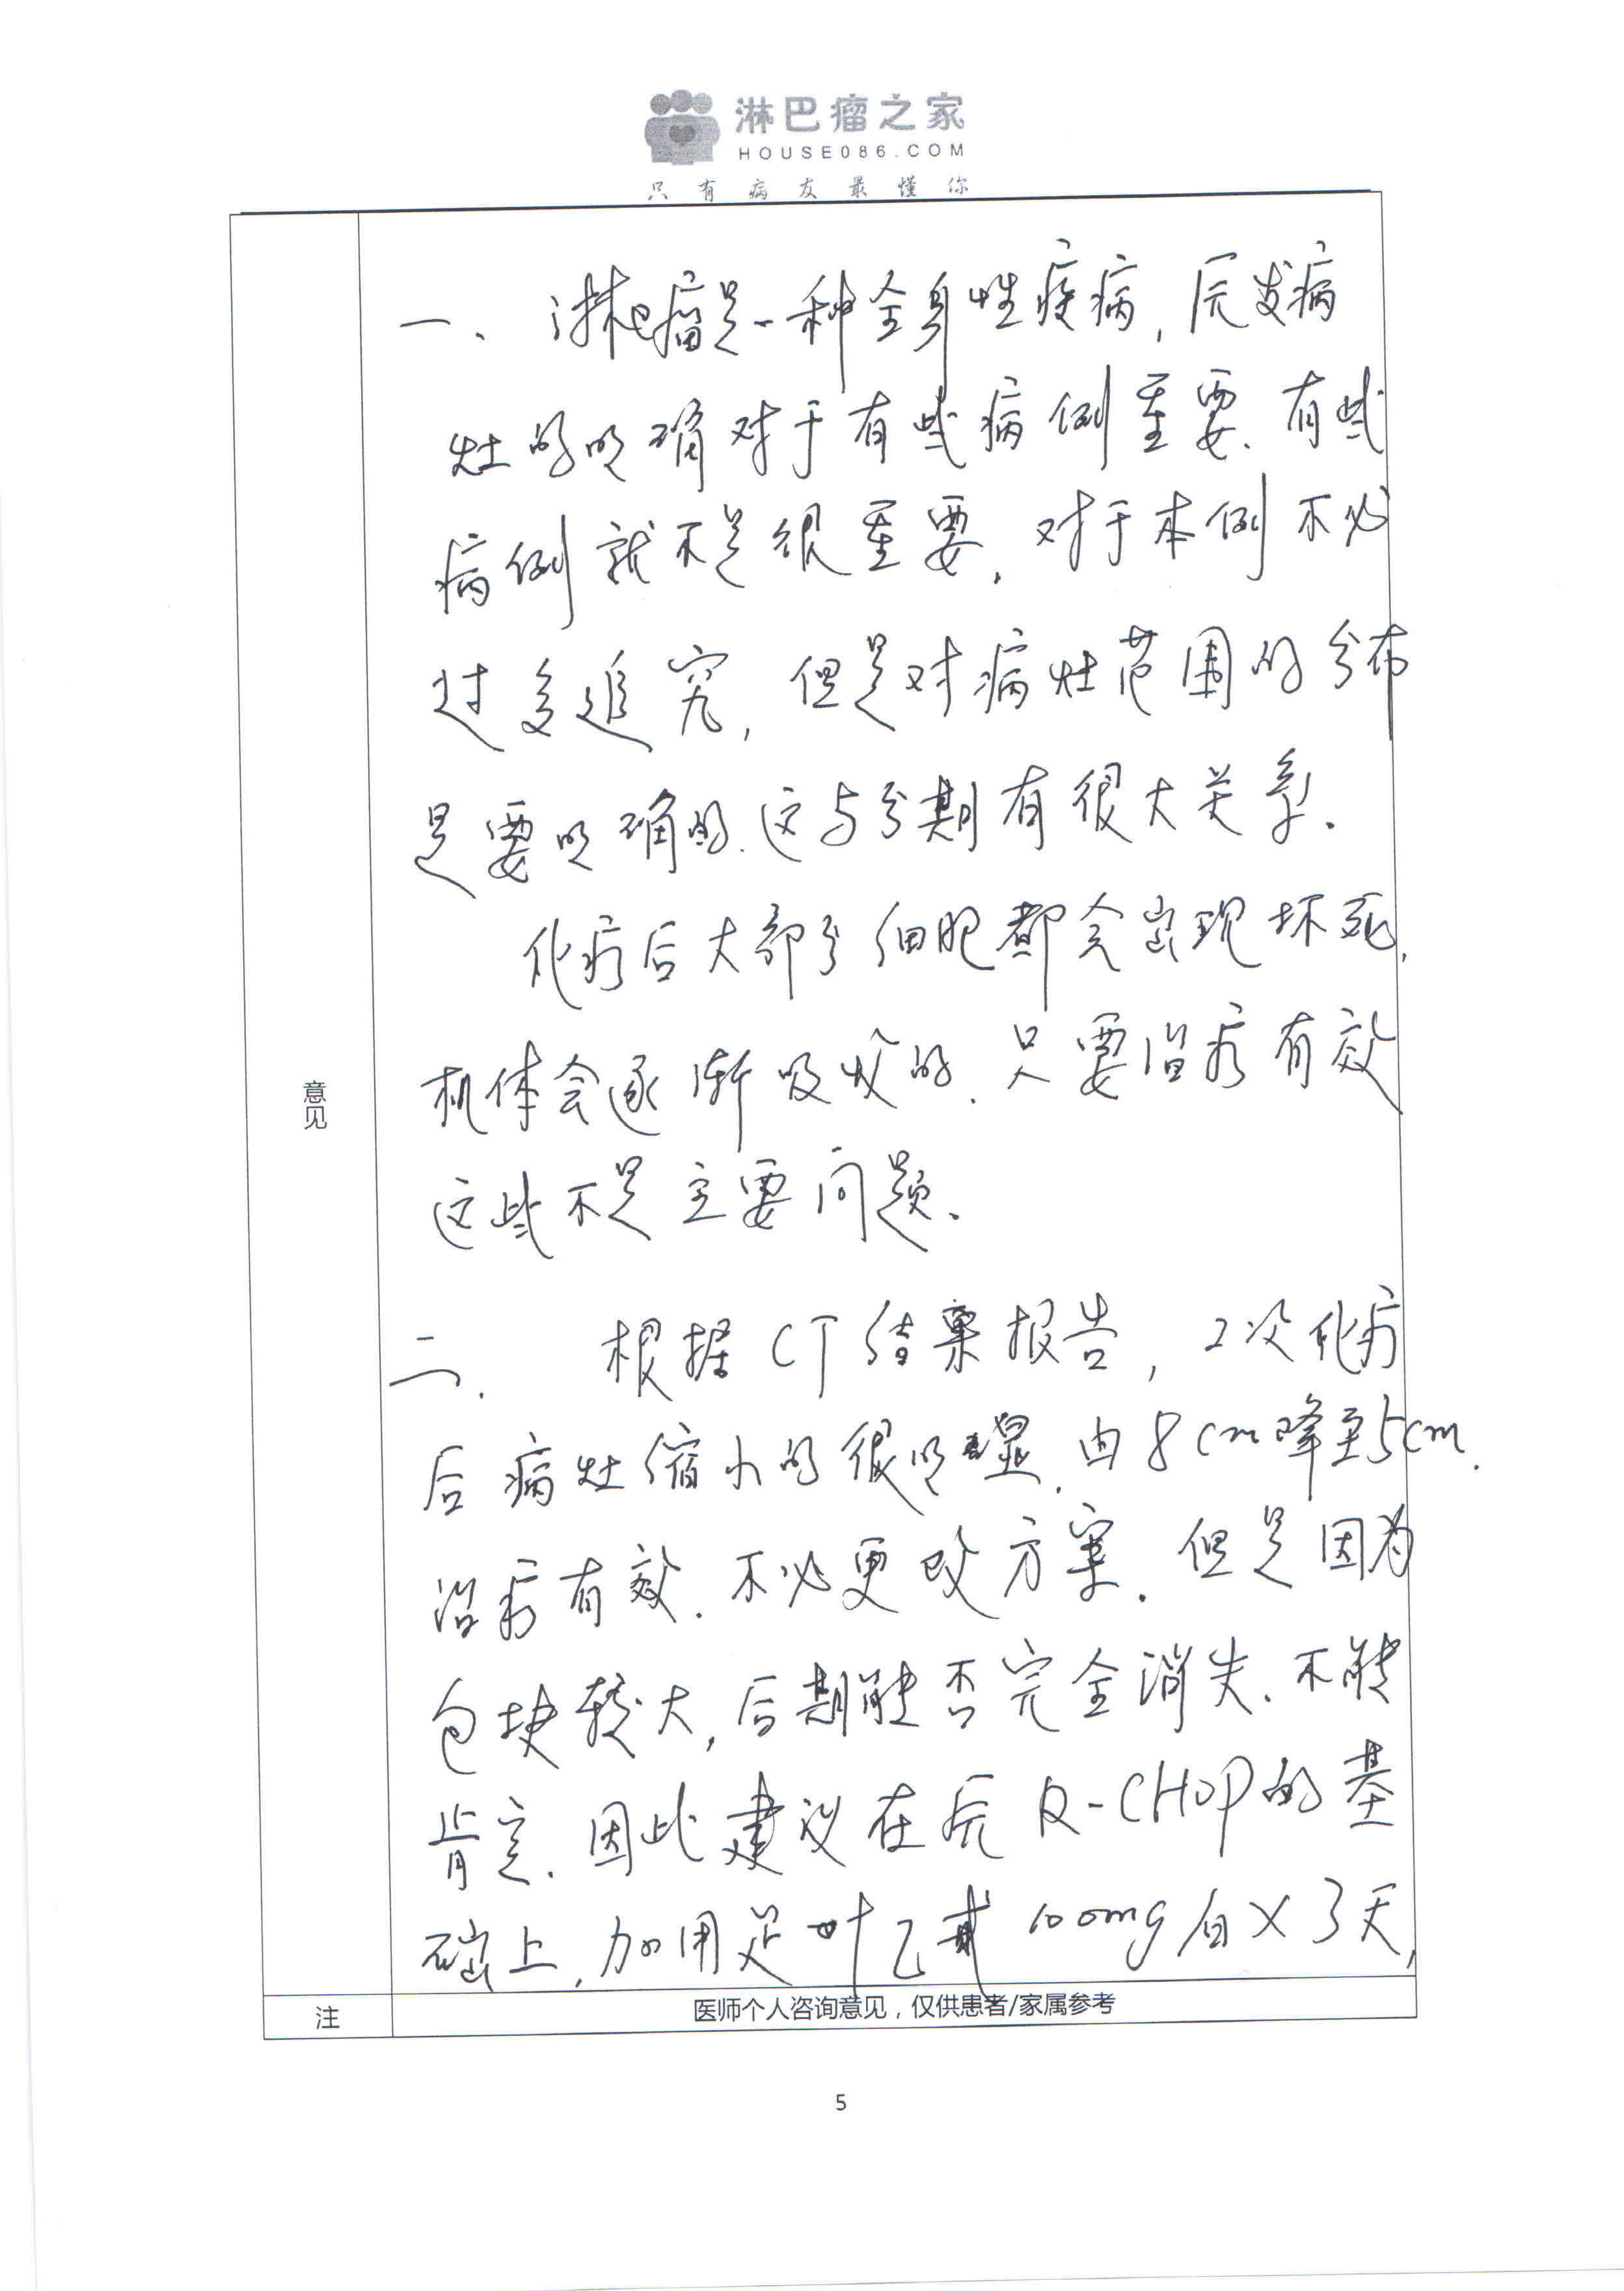 淋巴瘤之家
HOUSE086.COM
只有病友最懂你
一、淋巴瘤是一种全身性疾病，原发病
灶的明确对于有些病例重要、有些
病例就不是很重要，对于本例不必
过多追究，但是对病灶范围的分布
是要明确的.这与分期有很大关系.
化疗后大部分细胞都会出现坏死，
机体会逐渐吸收的.只要治疗有效
这些不是主要问题.
意见
二.根据CT结果报告，2次化疗
后病灶缩小的很明显.由8cm降至5cm.
治疗有效.不必更改方案.但是因为
包块较大，后期能否完全消失、不能
肯定.因此建议在原R-CHOP的基
础上.加用足叶乙甙100mg/日X3天，
注 医师个人咨询意见，仅供患者/家属参考
5